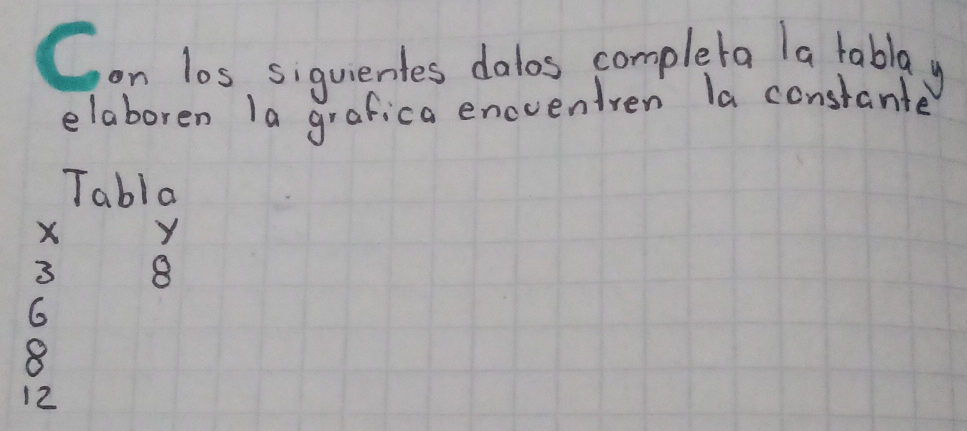 Con los siguientes datos completa la tabla y
elaboren la grafica encuentren la constante
Tabla
x y
3 8
6
8
12